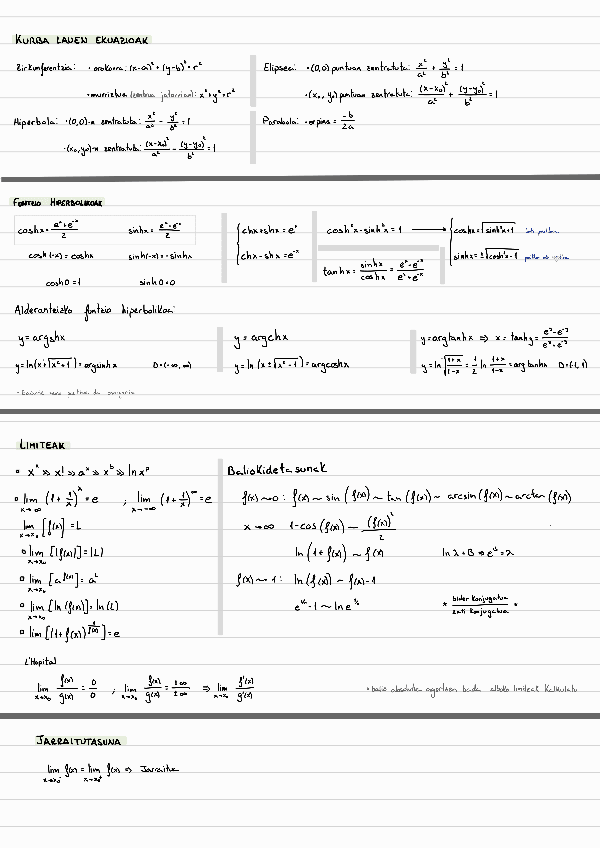 KURBA LAUEN EKUAZIOAK
Zirkunferentzia: · orokorra: (x-a)² + (y-b)² = r²
· murriztua (zentrua jatorrian): x² + y² = r²
Elipsea: · (0,0) puntuan zentratuta: x²/a² + y²/b² = 1
· (x₀, y₀) puntuan zentratuta: (x-x₀)²/a² + (y-y₀)²/b² = 1
Hiperbola: · (0,0)-n zentratuta: x²/a² - y²/b² = 1
· (x₀,y₀)-n zentratuta: (x-x₀)²/a² - (y-y₀)²/b² = 1
Parabola: · erpina = -b/2a
FUNTZIO HIPERBOLIKOAK
coshx = (eˣ + e⁻ˣ)/2 sinhx = (eˣ - e⁻ˣ)/2
cosh(-x) = coshx sinh(-x) = -sinhx
cosh0 = 1 sinh0 = 0
chx + shx = eˣ
chx - shx = e⁻ˣ
cosh²x - sinh²x = 1 →
tanhx = sinhx/coshx = (eˣ - e⁻ˣ)/(eˣ + e⁻ˣ)
coshx = √(sinh²x + 1)
sinhx = ±√(cosh²x - 1)
Alderantzizko funtzio hiperbolikoak:
y = argshx
y = ln(x + √(x² + 1)) = argsinhx D = (-∞, ∞)
y = argchx
y = ln(x ± √(x² - 1)) = argcoshx
y = argtanhx ⇒ x = tanhy = (eʸ - e⁻ʸ)/(eʸ + e⁻ʸ)
y = ln√((1+x)/(1-x)) = 1/2 ln (1+x)/(1-x) = argtanhx D = (-1, 1)
LIMITEAK
· xˣ >> x! >> aˣ >> xᵇ >> ln xᵖ
lim x→∞ (1 + 1/x)ˣ = e ; lim x→-∞ (1 + 1/x)ˣ = e
lim x→x₀ [f(x)] = L
lim x→x₀ [|f(x)|] = |L|
lim x→x₀ [a^f(x)] = a^L
lim x→x₀ [ln(f(x))] = ln(L)
lim x→x₀ [(1 + f(x))^(1/f(x))] = e
Baliokidetasunak
f(x) ~ 0 : f(x) ~ sin(f(x)) ~ tan(f(x)) ~ arcsin(f(x)) ~ arctan(f(x))
x → ∞ 1 - cos(f(x)) ~ (f(x))²/2
ln(1 + f(x)) ~ f(x) ln λ = B ⇒ eᴮ = λ
f(x) ~ 1 : ln(f(x)) ~ f(x) - 1
* bider konjugatua / zati konjugatua *
L'Hopital
lim x→x₀ f(x)/g(x) = 0/0 ; lim x→x₀ f(x)/g(x) = ±∞/±∞ ⇒ lim x→x₀ f'(x)/g'(x)
* balio absolutua agertzen bada alboko limiteak kalkulatu
JARRAITUTASUNA
lim x→x₀⁻ f(x) = lim x→x₀⁺ f(x) ⇒ Jarraitua